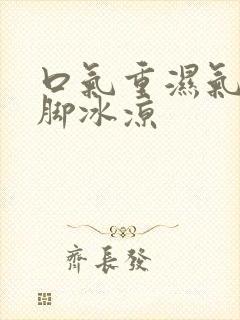 口氣重濕氣
脚冰凉
齊長發